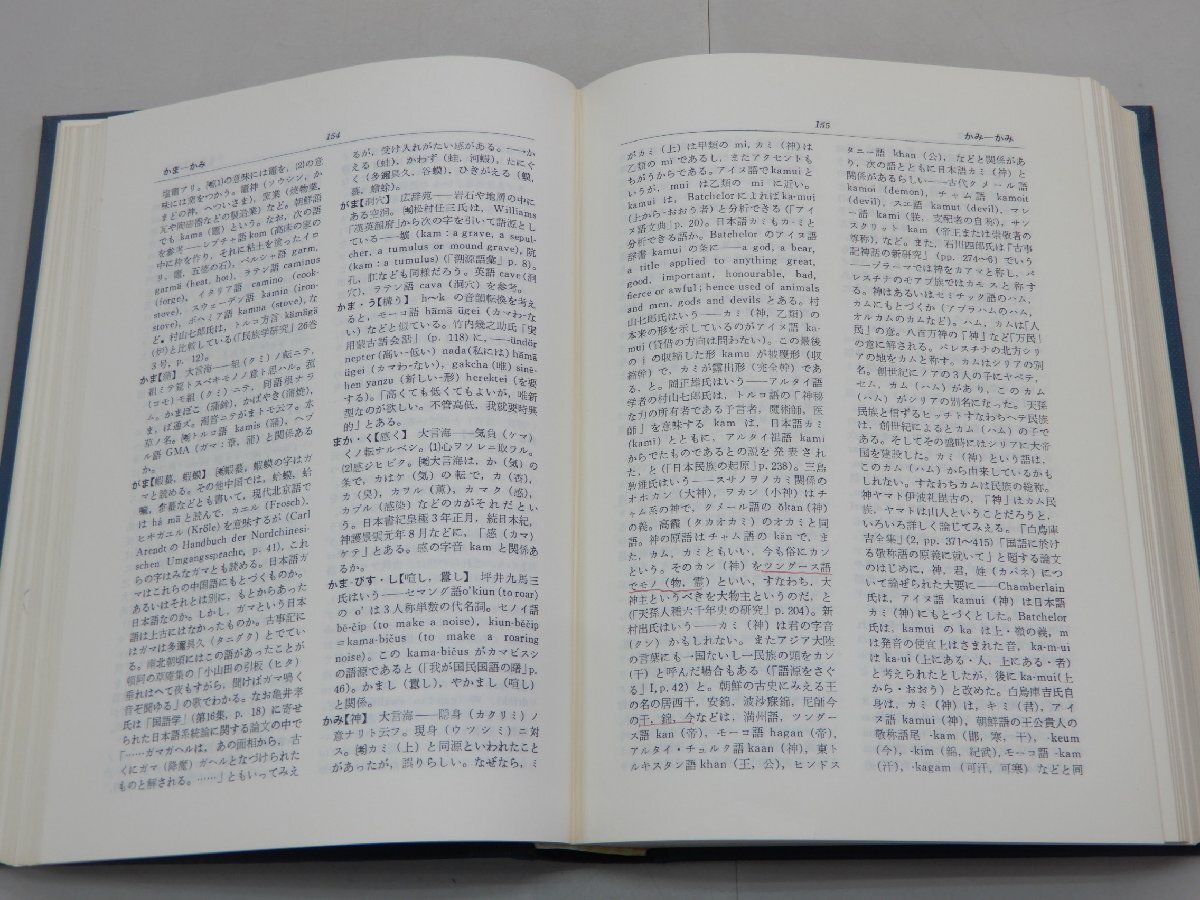 154
かま—かみ
塩竈アリ。㊟(1)の意味には竈を，(2)の意
味には窯をつかう。竈神（ソウシン，か
まどの神，へついさま），窯業（焼物業，
瓦や陶磁器などの製造業）など。朝鮮語
でも kama（竈）という。なお，次の語
を参考——レプチャ語 kom（高床の家の
中に枠を作り，それに粘土を塗ったイロ
リ，竈，五徳の石），ペルシャ語 garm，
garmā (heat, hot)，ラテン語 caminus
(forge)，イタリア語 camino (cook-
stove)，スウェーデン語 kamin (iron-
stove)，ボヘミア語 kamna (stove)，な
ど。村山七郎氏は，トルコ方言 kämägä
（炉）と比較している（『民族学研究』26巻
3号，p. 12）。
大言海——組（クミ）ノ転ニテ，
組ミテ筵トスベキモノノ意ト思ハル。菰
（コモ）モ組（クミ）ニテ，同語根ナラ
ム。かまぼこ（蒲鉾），かばやき（蒲焼），
ま，は通ズ。濁音ニテがまトモ云フ。水
草ノ名。㊟トルコ語 kamis（蒲），ヘブ
ル語 GMA（ガミ葦，蒲）と関係ある
か。
がま【蝦蟇，蝦蟆】㊟蝦蟇，蝦蟆の字はガ
マと読める。その他中国では，蛤蟆，蛤
蟇などとも書いて，現代北京語で
は há mā と読んで，カエル (Frosch)，
ヒキガエル (Kröte) を意味するが (Carl
Arendt の Handbuch der Nordchinesi-
schen Umgangssprache, p. 41)，これ
らの字はみなガマとも読める。日本語ガ
マはこれらの中国語にもとづくものか。
あるいはそれとは別に，もとからあった
日本語なのか。しかし，ガマという日本
語は上古にはなかったものか。古事記に
はガマは多邇具久（タニグク）とでてい
る。南北朝頃にはこの語があったことが
頓阿の草庵集の「小山田の引板（ヒタ）
垂れはへて夜もすがら，聞けばガマ鳴く
音ぞ聞ゆる」の歌でわかる。なお亀井孝
氏は『国語学』（第16集，p. 18）に寄せ
られた日本語系統論に関する論文の中で
「……ガマガヘルは，あの面相から，古
くにガマ（降魔）ガヘルとなづけられた
ものと解される。……」ともいってみえ
るが，受け入れがたい感がある。——→か
える（蛙），かわず（蛙，河蝦），たにぐ
く（多邇具久，谷蟆），ひきがえる（蟇，
蟇，蟾蜍）。
がま【洞穴】広辞苑——岩石や地層の中に
ある空洞。㊟松村任三氏は，Williams
『漢英韻府』から次の字を引いて語源とし
ている—— (kam : a grave, a sepul-
cher, a tumulus or mound grave)，
(kam : a tumulus)（『溯源語彙』p. 8）。
孔，缸なども同様だろう。英語 cave（洞
穴），ラテン語 cava（洞穴）を参考。
かま・う【構う】h〜k の音韻転換を考え
ると，モーコ語 hāmā ügei（カマわな
い）などと似ている。竹内幾之助氏『実
用蒙古語会話』(p. 118) に，——ündör
nepter（高い-低い）nada（私には）hāmā
ügei（カマわ-ない），gakcha（唯）sinē-
hen yanzu（新しい-形）herektei（を要
する）。「高くても低くてもよいが，唯新
型なのが欲しい。不管高低，我就要時興
的」とある。
まか・く【感く】大言海——気負（ケマ）
クノ転オルベシ。(1)心ヲソレニ取ラル。
(2)感ジヒビク。㊟大言海は，か（気）の
条で，カはケ（気）の転で，カ（香），
カ（臭），カヲル（薫），カマク（感），
カブル（感染）などのカがそれだとい
う。日本書紀皇極3年正月，続日本紀，
神護景雲元年8月などに，「感（カマ）
ケテ」とある。感の字音 kam と関係ある
か。
かま・びす・し【喧し，囂し】坪井九馬三
氏はいう——セマング語 o'kiun (to roar)
の o' は3人称単数の代名詞。セノイ語
bē-čip (to make a noise)，kiun-bēčip
＝kama-bičus (to make a roaring
noise)。この kama-bičus がカマビスシ
の語源であると（『我が国民国語の曙』p.
46）。かまし（囂し），やかまし（喧し）
と関係。
かみ【神】大言海——隠身（カクリミ）ノ
意ナリト云フ。現身（ウツシミ）ニ対
ス。㊟カミ（上）と同源といわれたこと
があったが，誤りらしい。なぜなら，ミ
155
かみ—かみ
がカミ（上）は甲類の mi，カミ（神）は
乙類の mi であるし，またアクセントも
ちがうからである。アイヌ語で kamui と
いうが，mui は乙類の mi に近い。
kamui は，Batchelor によれば ka-mui
（上から-おおう者）と分析できる（『アイ
ヌ語文典』p. 20）。日本語カミもカ-ミと
分析できる語か。Batchelor のアイヌ語
辞書 kamui の条に——a god, a bear,
a title applied to anything great,
good, important, honourable, bad,
fierce or awful; hence used of animals
and men, gods and devils とある。村
山七郎氏はいう——カミ（神，乙類）の
本来の形を示しているのがアイヌ語 ka-
mui（貸借の方向は問わない）。この最後
の i の収縮した形 kamu が被覆形（収
縮幹）で，カミが露出形（完全幹）であ
る，と。岡正雄氏はいう——アルタイ語
学者の村山七郎氏は，トルコ語の「神秘
な力の所有者である予言者，魔術師，医
師」を意味する kam は，日本語カミ
(kami) とともに，アルタイ祖語 kamı
からでたものであるとの説を発表され
た，と（『日本民族の起原』p. 238）。三島
敦雄氏はいう——スサノヲノカミ関係の
オホカン（大神），ヲカン（小神）はチ
ャム系の神で，クメール語の ōkan（神）
の義。高龗（タカオカミ）のオカミと同
語。神の原語はチャム語の kān で，ま
た，カム，カミともいい，今も俗にカン
という。そのカン（神）をツングース語
でモノ（物，霊）といい，すなわち，大
神主というべきを大物主というのだ，と
（『天孫人種六千年史の研究』p. 204）。新
村出氏はいう——カミ（神）は君の字音
（クン）かもしれない。またアジア大陸
の言葉にも一国ないし一民族の頭をカン
（干）と呼んだ場合もある（『語源をさぐ
る』I, p. 42）と。朝鮮の古史にみえる王
の名の居西干，安錦，波沙寐錦，尼師今
の干，錦，今などは，満州語，ツングー
ス語 kan（帝），モーコ語 hagan（帝），
アルタイ・チュルク語 kaan（神），東ト
ルキスタン語 khan（王，公），ヒンドス
タニー語 khan（公），などと関係があ
り，次の語とともに日本語カミ（神）と
関係があるらしい——古代クメール語
kamoi (demon)，チャム語 kamoit
(devil)，スエ語 kamut (devil)，マレ
ー語 kami（朕，支配者の自称），サン
スクリット kam（帝王または崇敬者の
尊称），など。また，石川四郎氏は『古事
記神話の新研究』(pp. 274〜6) でいう
——ブラーマでは神をカアマと称し，パ
レスチナのモアブ族ではカモスと称す
る。神はあるいはセミチック語のハム，
カムにもとづくか（アブラハムのハム，
オルカムのカムなど）。ハム，カムは「人
民」の意。八百万神の「神」など「万民」
の意に解される。パレスチナの北方シリ
アの地をカムと称す。カムはシリアの別
名。創世紀にノアの3人の子にヤペテ，
セム，カム（ハム）があり，このカム
（ハム）がシリアの別名になった。天孫
民族と信ずるヒッチトすなわちヘテ民族
は，創世紀によるとカム（ハム）の子で
ある。そしてその盛時にはシリアに大帝
国を建設した。カミ（神）という語は，
このカム（ハム）から由来しているかも
しれない。すなわちカムは民族の総称。
神ヤマト伊波礼毘古の，「神」はカム民
族，ヤマトは山人ということだろうと，
いろいろ詳しく論じてみえる。『白鳥庫
吉全集』(2, pp. 371〜415)「国語に於け
る敬称語の原義に就いて」と題する論文
のはじめに，神，君，姓（カバネ）につ
いて論ぜられた大要に——Chamberlain
氏は，アイヌ語 kamui（神）は日本語
カミ（神）にもとづくとした。Batchelor
氏は，kamui の ka は上・嶺の義，m
は発音の便宜上はさまれた音，ka-m-ui
は ka-ui（上にある・人，上にある・者）
と考えられたとしたが，後に ka-mui（上
から・おおう）と改めた。白鳥庫吉氏自
身は，カミ（神）は，キミ（君），アイ
ヌ語 kamui（神），朝鮮語の王公貴人の
敬称語尾 -kam（邯，寒，干），-keum
（今），-kim（錦，紀武），モーコ語 -kam
（汗），-kagam（可汗，可寒）などと同